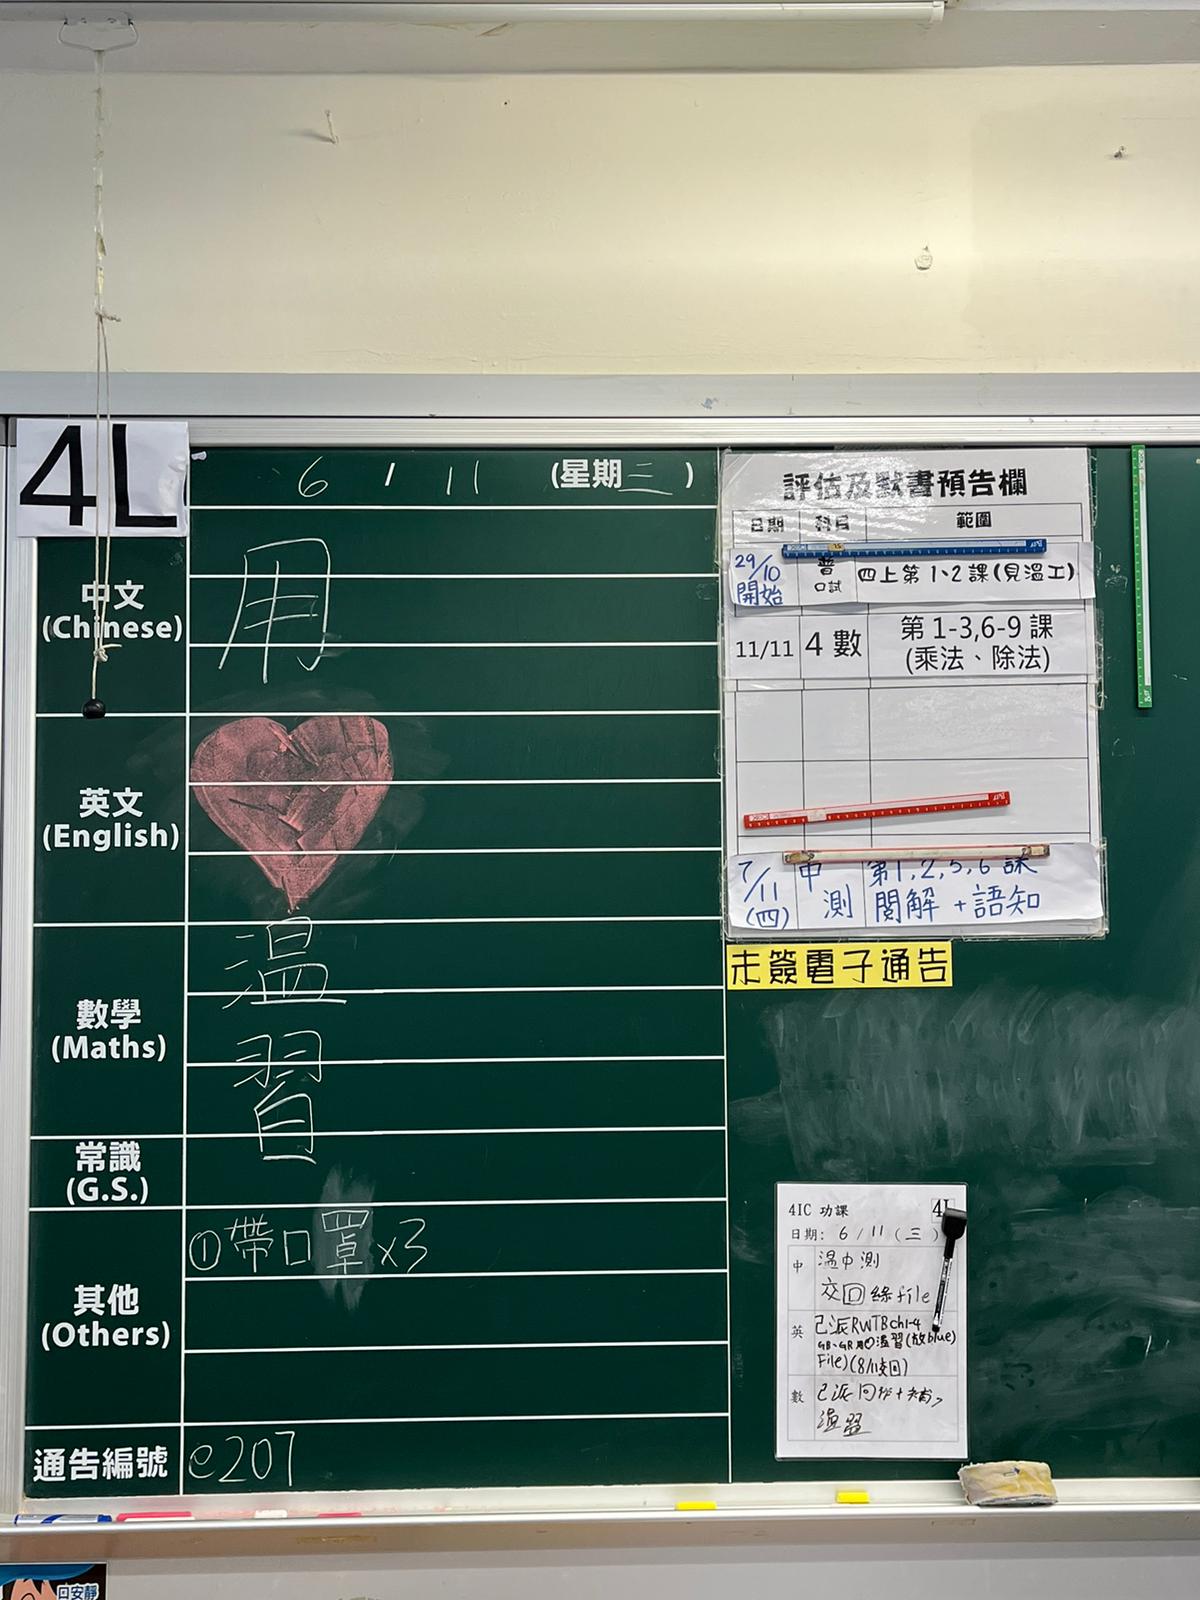 4L
6 / 11 (星期三)
中文
(Chinese)
用
英文
(English)
數學
(Maths)
溫
習
常識
(G.S.)
其他
(Others)
①帶口罩x3
通告編號
e207
評估及默書預告欄
日期 科目 範圍
29/10 開始 普 口試 四上第1、2課(見溫工)
11/11 4數 第1-3,6-9課
(乘法、除法)
7/11 (四) 中測 第1,2,5,6課
閱解+語知
未簽電子通告
4IC 功課 4L
日期: 6/11(三)
中 溫中測
交回 綠file
英 已派RWTBch1-4
GB、GR 溫習(放blue
File)(8/11交回)
數 已派
溫習
口安靜